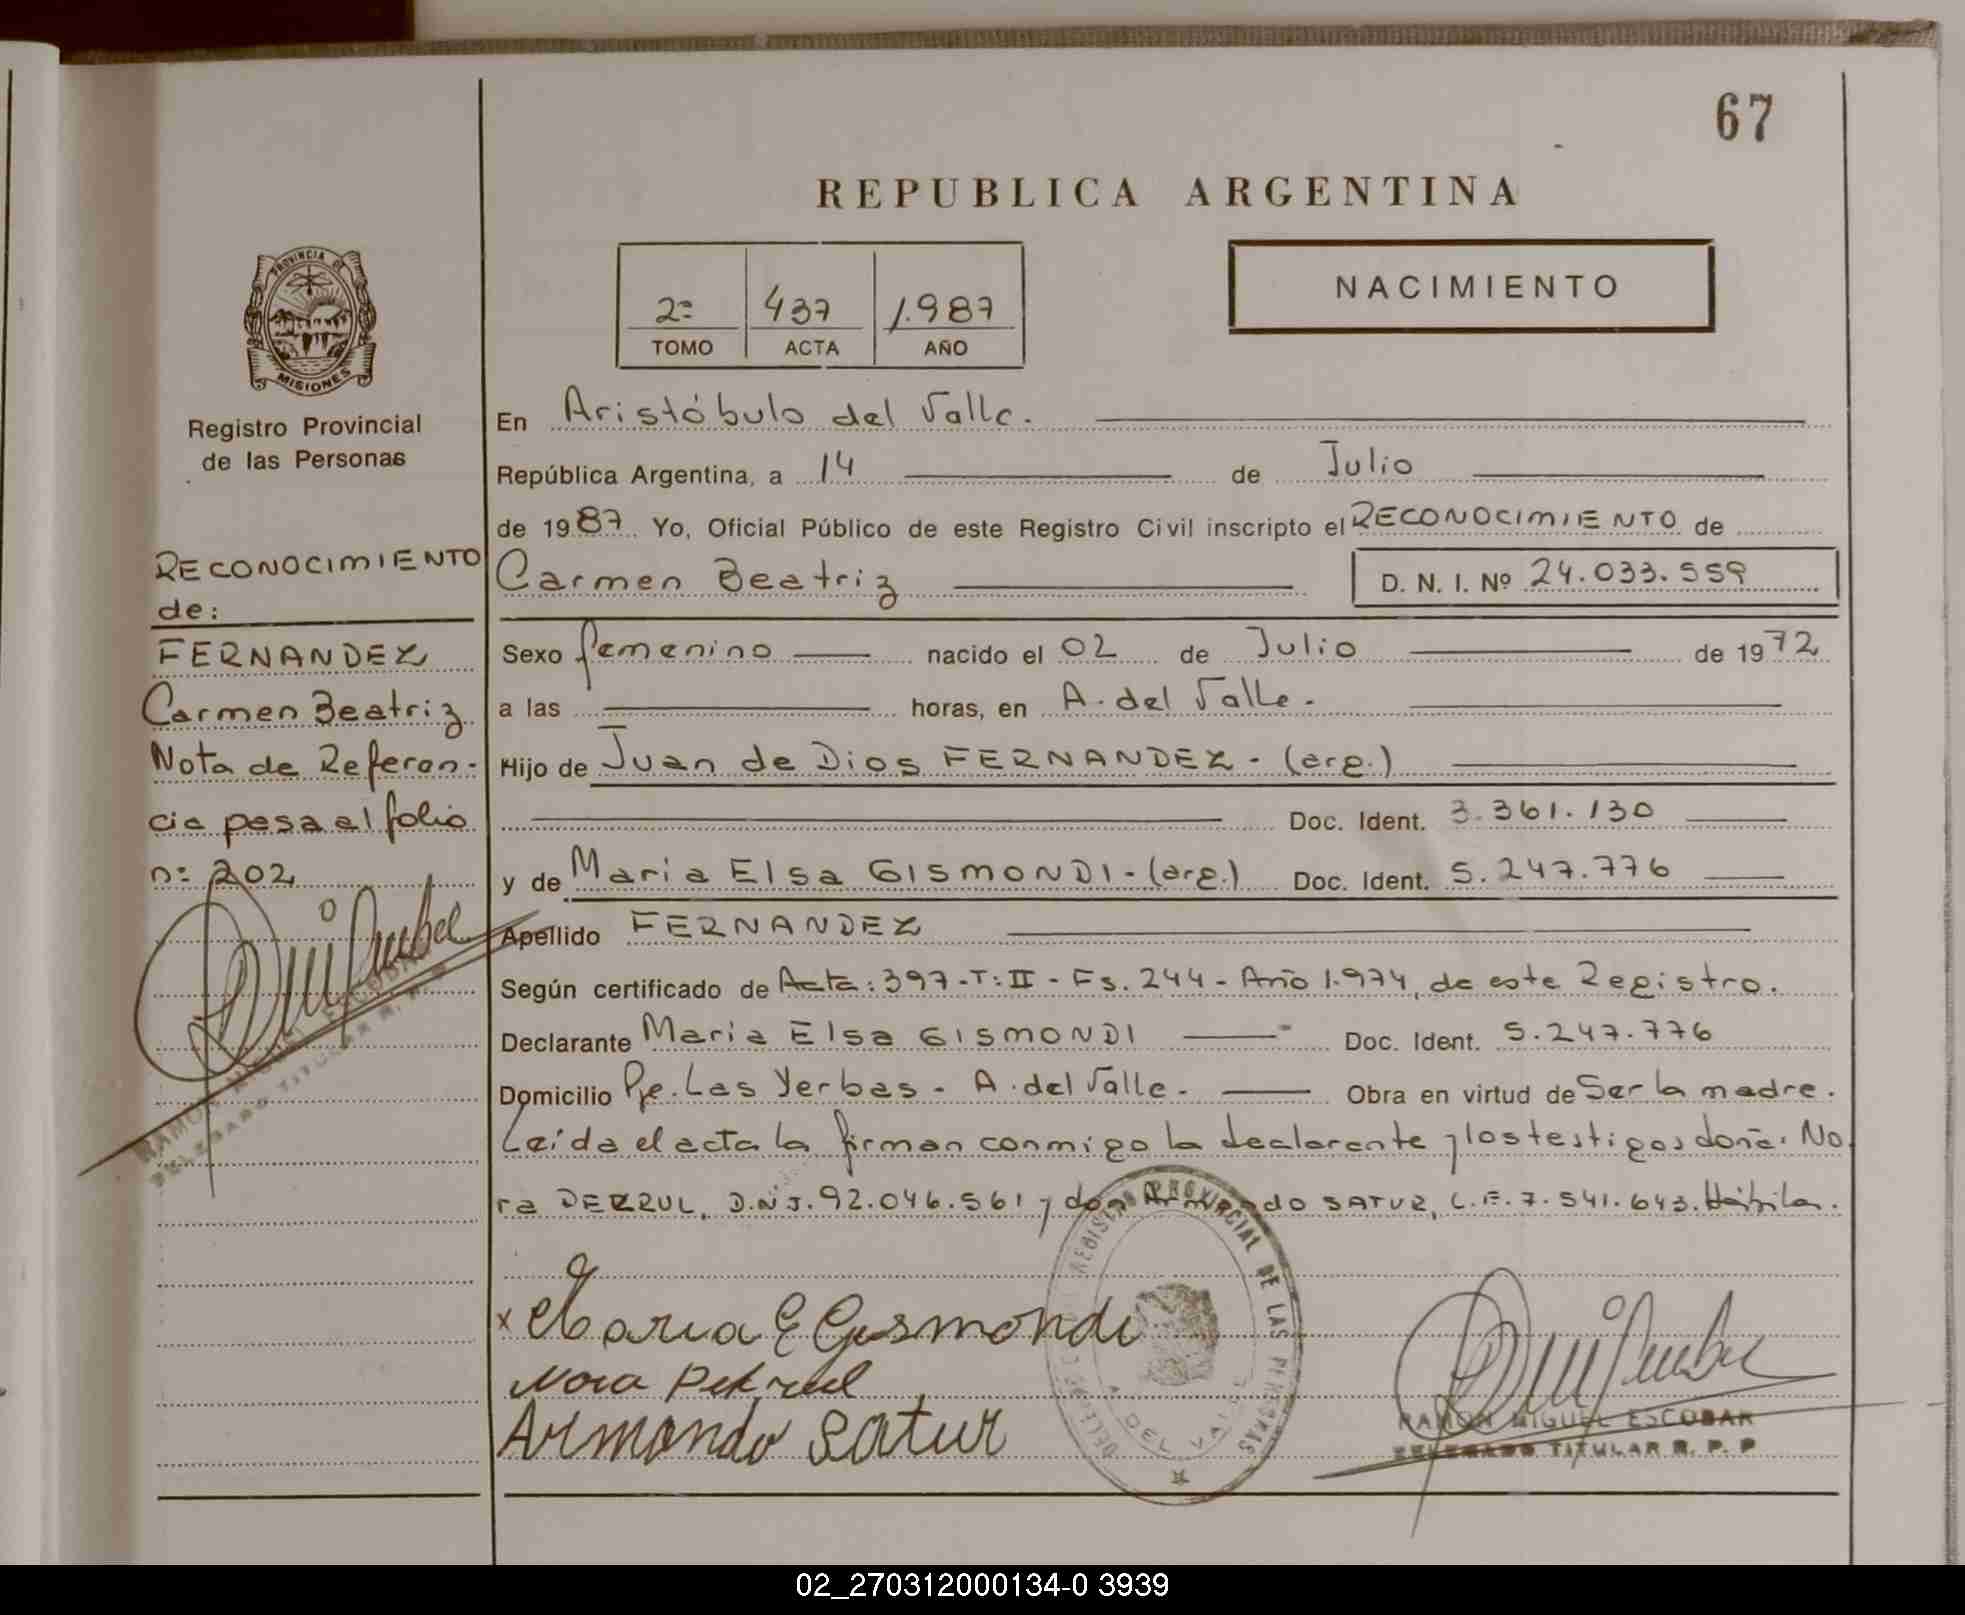 67
REPUBLICA ARGENTINA
PROVINCIA DE
MISIONES
Registro Provincial
de las Personas
2º 437 1.987
TOMO ACTA AÑO
NACIMIENTO
RECONOCIMIENTO
de:
FERNANDEZ
Carmen Beatriz
Nota de Referen-
cia pasa al folio
nº 202
RAMON MIGUEL ESCOBAR
DELEGADO TITULAR R. P. P
En Aristóbulo del Valle.
República Argentina, a 14 de Julio
de 1987 Yo, Oficial Público de este Registro Civil inscripto el RECONOCIMIENTO de
Carmen Beatriz D. N. I. Nº 24.033.559
Sexo femenino nacido el 02 de Julio de 1972
a las horas, en A. del Valle.
Hijo de Juan de Dios FERNANDEZ - (arg.)
Doc. Ident. 3.361.130
y de Maria Elsa GISMONDI - (arg.) Doc. Ident. 5.247.776
Apellido FERNANDEZ
Según certificado de Acta: 397-T: II - Fs. 244 - Año 1.974, de este Registro.
Declarante Maria Elsa GISMONDI Doc. Ident. 5.247.776
Domicilio Pje. Las Yerbas - A. del Valle. Obra en virtud de Ser la madre.
Leída el acta la firman conmigo la declarante y los testigos doña: No
ra DERRUL, D.N.I. 92.046.561 y don Armando SATUR, L.E. 7.541.643. Hábiles.
x Maria E Gismondi
Nora
Armando Satur
REGISTRO PROVINCIAL DE LAS PERSONAS
A. DEL VALLE
RAMON MIGUEL ESCOBAR
DELEGADO TITULAR R. P. P
02_270312000134-0 3939